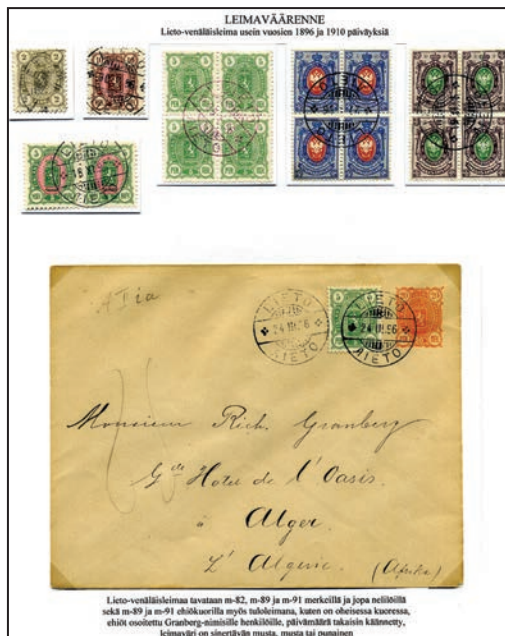 LEIMAVÄÄRENNE
Lieto-venäläisleima usein vuosien 1896 ja 1910 päiväyksiä
LIETO
24 III 96
ЛІЕТО
LIETO
24 III 96
ЛІЕТО
Monsieur Rich. Granberg
Gde Hotel de l'Oasis
à Alger
L'Algerie (Afrika)
Lieto-venäläisleimaa tavataan m-82, m-89 ja m-91 merkeillä ja jopa nelilöillä
sekä m-89 ja m-91 ehiökuorilla myös tuloleimana, kuten on oheisessa kuoressa,
ehiöt osoitettu Granberg-nimisille henkilöille, päivämäärä takaisin käännetty,
leimaväri on sinertävän musta, musta tai punainen